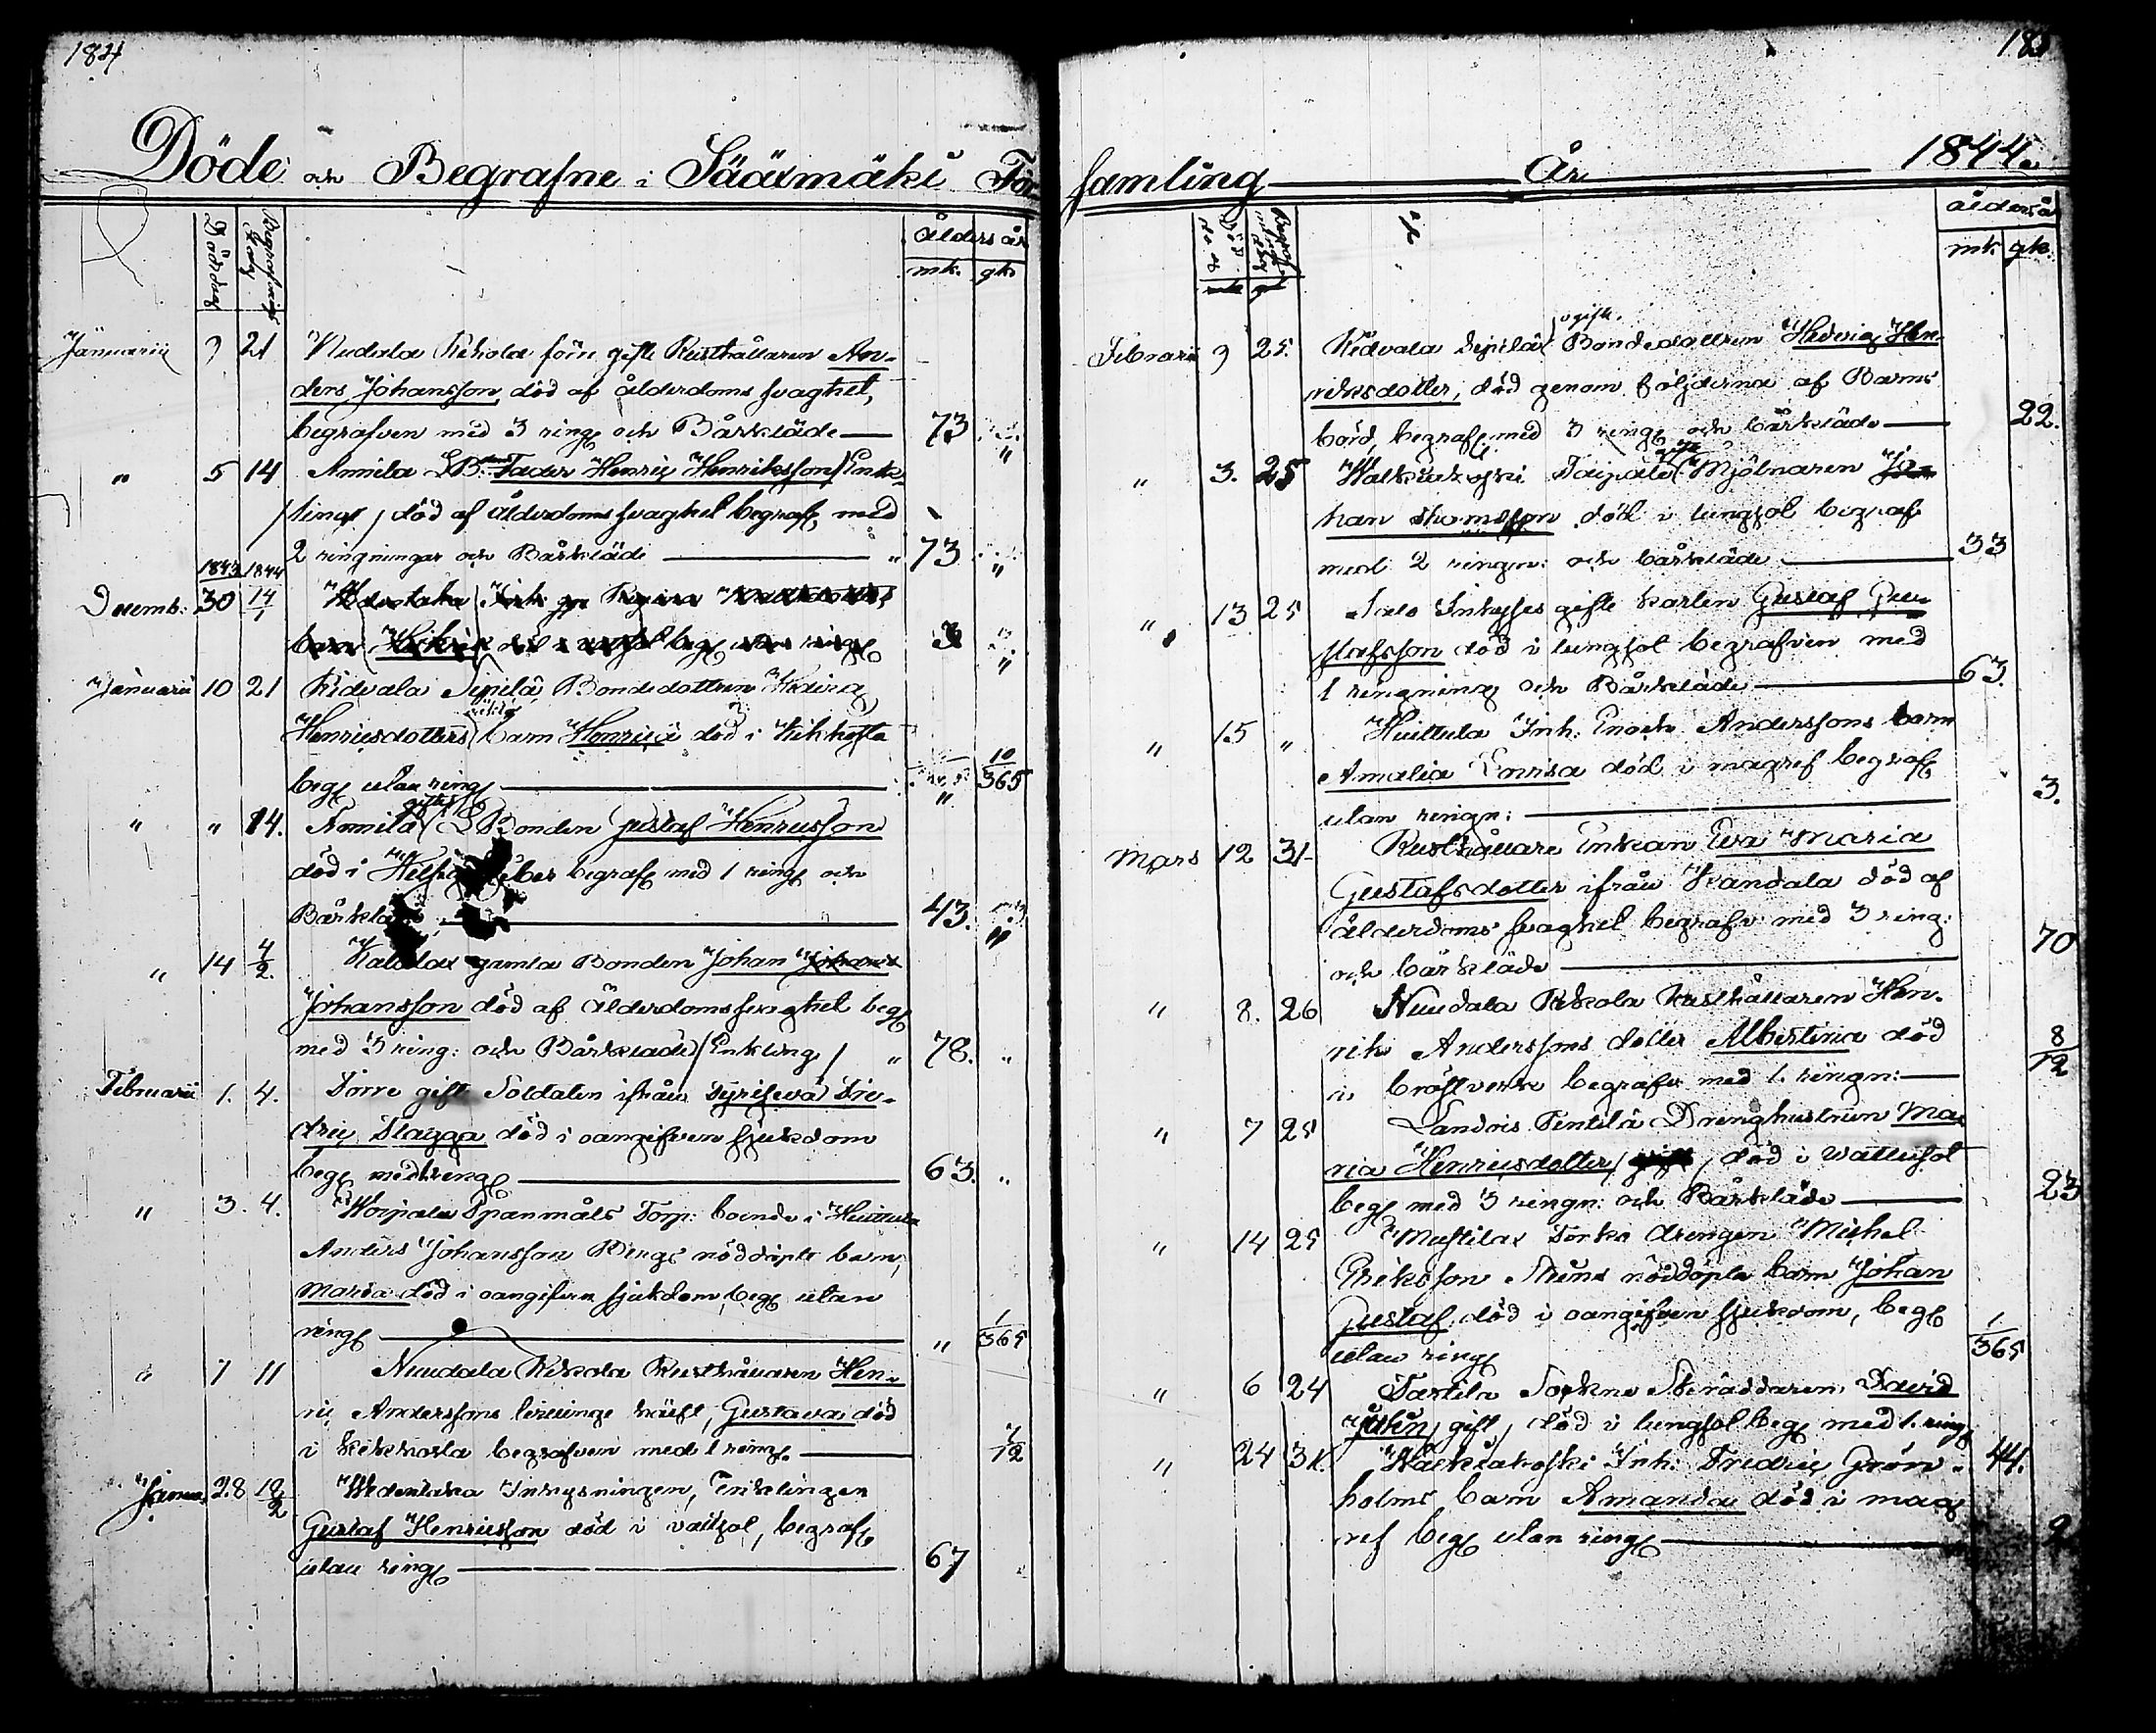 184
Döde och Begrafne i Sääxmäki För
Döds dag
Begrafnings dag
Ålders år
mk. gk.
Januarii 9 21 Nudala Rekola förre gifte Rusthållaren An-
ders Johansson, död af ålderdoms svaghet,
begrafven med 3 ring och Bårkläde — 73 "
" 5 14 Annila Fader Henric Henriksson / Enk-
ling / död af Ålderdoms svaghet begraf med
2 ringningar och Bårkläde — " 73 "
1843 1844
Decemb: 30 14/1
barn 3 "
Januarii 10 21 Ridvala Sipilä Bondedottren Hedvig
Henricsdotters oäkta barn Henric död i Kikhosta
beg utan ring — " 10/365
" " 14. Annila gifte Bonden Gustaf Henricsson
död i feber begraf med 1 ring och
Bårkläde — 43. "
" 14 4/2. gamla Bonden Johan
Johansson död af Ålderdomssvaghet beg
med 3 ring: och Bårkläde / Enkling / " 78. "
Februarii 1. 4. gift Soldaten ifrån Fre-
dric Slagga död i oangifven sjukdom
beg med 1 ring — 63. "
" 3. 4. Spanmåls Torp: boende i Huittula
Anders Johansson Rings nöddöpte barn,
Maria död i oangifven sjukdom, beg utan
ring — " 1/365
" 7 11 Nuudala Rekola Rusthållaren Hen-
ric Anderssons tvillinge Gustava död
i kikhosta begrafven med 1 ring. — 7/12
Januar. 28 18/2 Inhysningen, Enklingen
Gustaf Henricsson död i begraf
utan ring — 67 "
185
samling — År 1844.
Döds dag
Begrafnings dag
ålders år
mk gk.
Februarii 9 25. Ridvala Sipilä ogifte. Bondedottren Hedvig Hen-
riksdotter, död genom följderna af Barns
börd, begraf med 3 ring och bårkläde — 22.
" 3. 25 Walkiakoski gifte Mjölnaren Jo-
han Thomasson död i lungsot begraf
med 2 ringn: och bårkläde — 33
" 13 25 Inhyses gifte karlen Gustaf Gu-
stafsson död i lungsot begrafven med
1 ringning och Bårkläde — 63.
" 15 " Huittula Inh: Enoch Anderssons barn
Amalia Lovisa död i magref begraf
utan ringn: — 3.
Mars 12 31 Rusthållare Enkan Eva Maria
Gustafsdotter ifrån Kandala död af
ålderdoms svaghet begrafv: med 3 ring:
och bårkläde — 70
" 8. 26 Nuudala Rekola Rusthållaren Hen-
rik Anderssons dotter Albertina död
i bröstverk begrafv med 1. ringn: — 8/12
" 7 25 Pentilä Drenghustrun Ma-
ria Henricsdotter, död i Wattusot
beg med 3 ringn: och Bårkläde — 23
" 14 25 drengen Michel
Eriksson nöddöpta barn Johan
Gustaf död i oangifven sjukdom, beg
utan ring 1/365
" 6 24 Sockne Skräddaren David
/ gift / död i lungsot beg med 1. ring 44.
" 24 31. Walkiakoski Inh: Fredric Grön-
holms barn Amanda död i mag
ref beg utan ring — 2